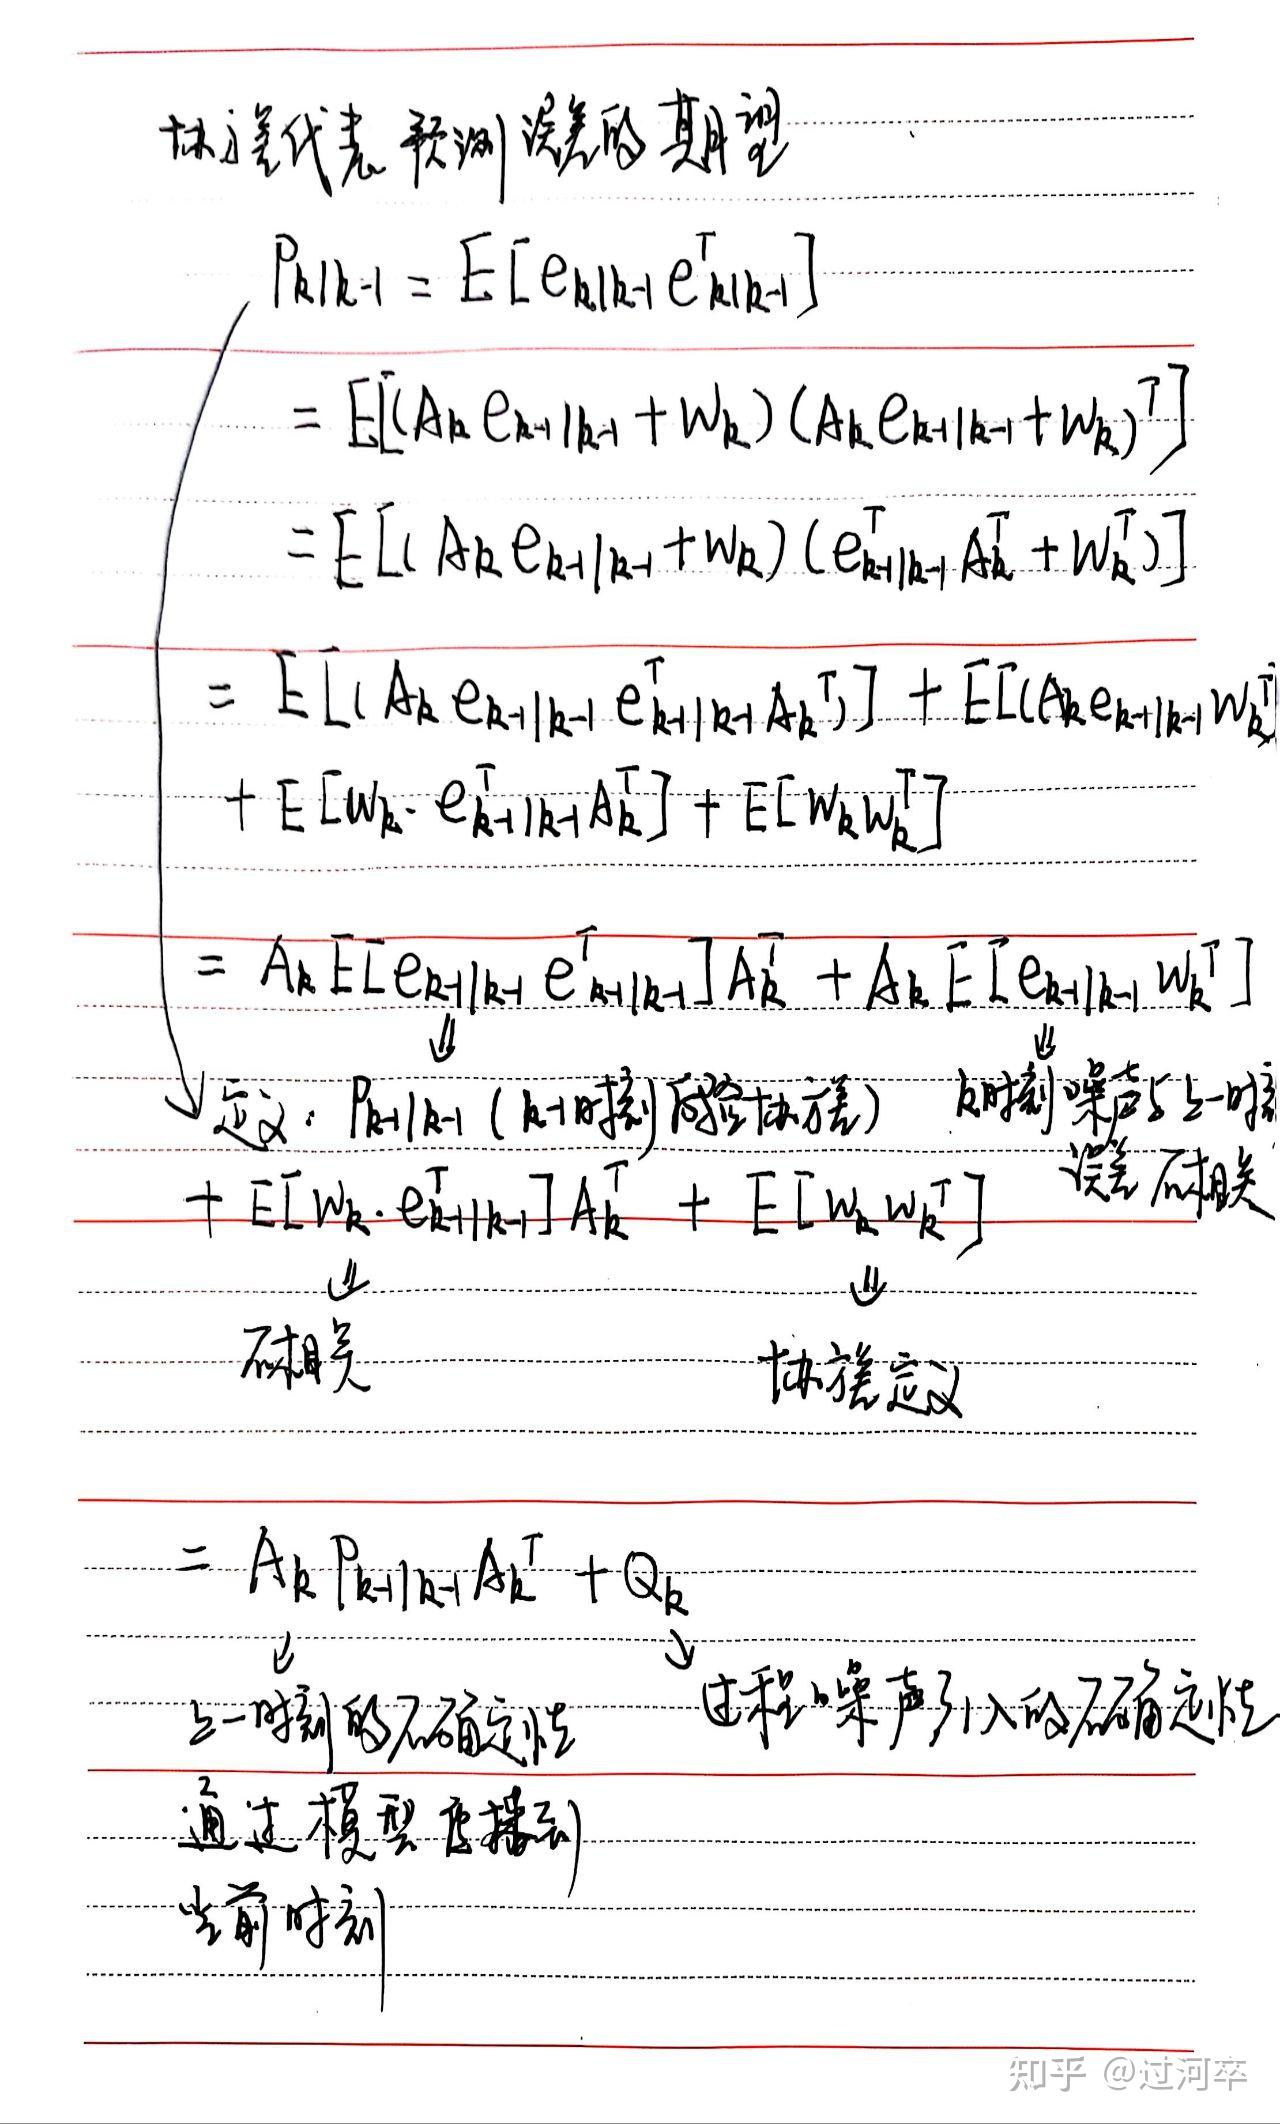 协方差代表预测误差的期望
P_{k|k-1} = E[e_{k|k-1} e^T_{k|k-1}]
= E[(A_k e_{k-1|k-1} + w_k)(A_k e_{k-1|k-1} + w_k)^T]
= E[(A_k e_{k-1|k-1} + w_k)(e^T_{k-1|k-1} A_k^T + w_k^T)]
= E[(A_k e_{k-1|k-1} e^T_{k-1|k-1} A_k^T)] + E[(A_k e_{k-1|k-1} w_k^T)]
+ E[w_k · e^T_{k-1|k-1} A_k^T] + E[w_k w_k^T]
= A_k E[e_{k-1|k-1} e^T_{k-1|k-1}] A_k^T + A_k E[e_{k-1|k-1} w_k^T]
⇓ ⇓
定义: P_{k-1|k-1} (k-1时刻后验协方差) k时刻噪声与上一时刻
误差不相关
+ E[w_k · e^T_{k-1|k-1}] A_k^T + E[w_k w_k^T]
⇓ ⇓
不相关 协方差定义
= A_k P_{k-1|k-1} A_k^T + Q_k
↓ ↘
上一时刻的不确定性 过程噪声引入的不确定性
通过模型传播到
当前时刻
知乎 @过河卒